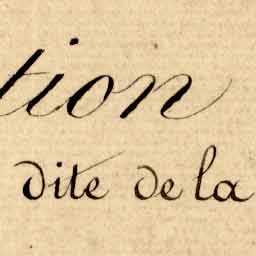 tion
dite de la